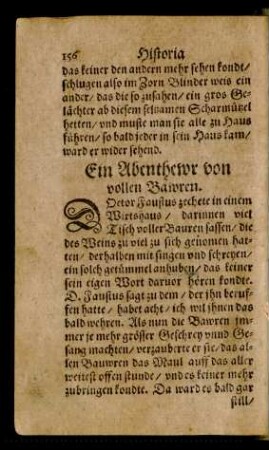 156 Historia
das keiner den andern mehr sehen kondt/
schlugen also im Zorn Blinder weis ein
ander/ das die so zusahen/ ein gros Ge-
lächter ab diesem seltzamen Scharmützel
hetten/ vnd muste man sie alle zu Haus
führen/ so bald jeder in sein Haus kam/
ward er wider sehend.
Ein Abenthewr von
vollen Bawren.
DOctor Faustus zechete in einem
Wirtshaus/ darinnen viel
Tisch voller Bauren sassen/ die
des Weins zu viel zu sich genomen hat-
ten/ derhalben mit singen vnd schreyen/
ein solch getümmel anhuben/ das keiner
sein eigen Wort daruor hören kondte.
D. Faustus sagt zu dem/ der jhn beruf-
fen hatte/ habet acht/ ich wil jhnen das
bald wehren. Als nun die Bawren im-
mer je mehr grösser Geschrey vnnd Ge-
sang machten/ verzauberte er sie/ das al-
len Bauwren das Maul auff das aller
weitest offen stunde/ vnd es keiner mehr
zubringen kondte. Da ward es bald gar
still/